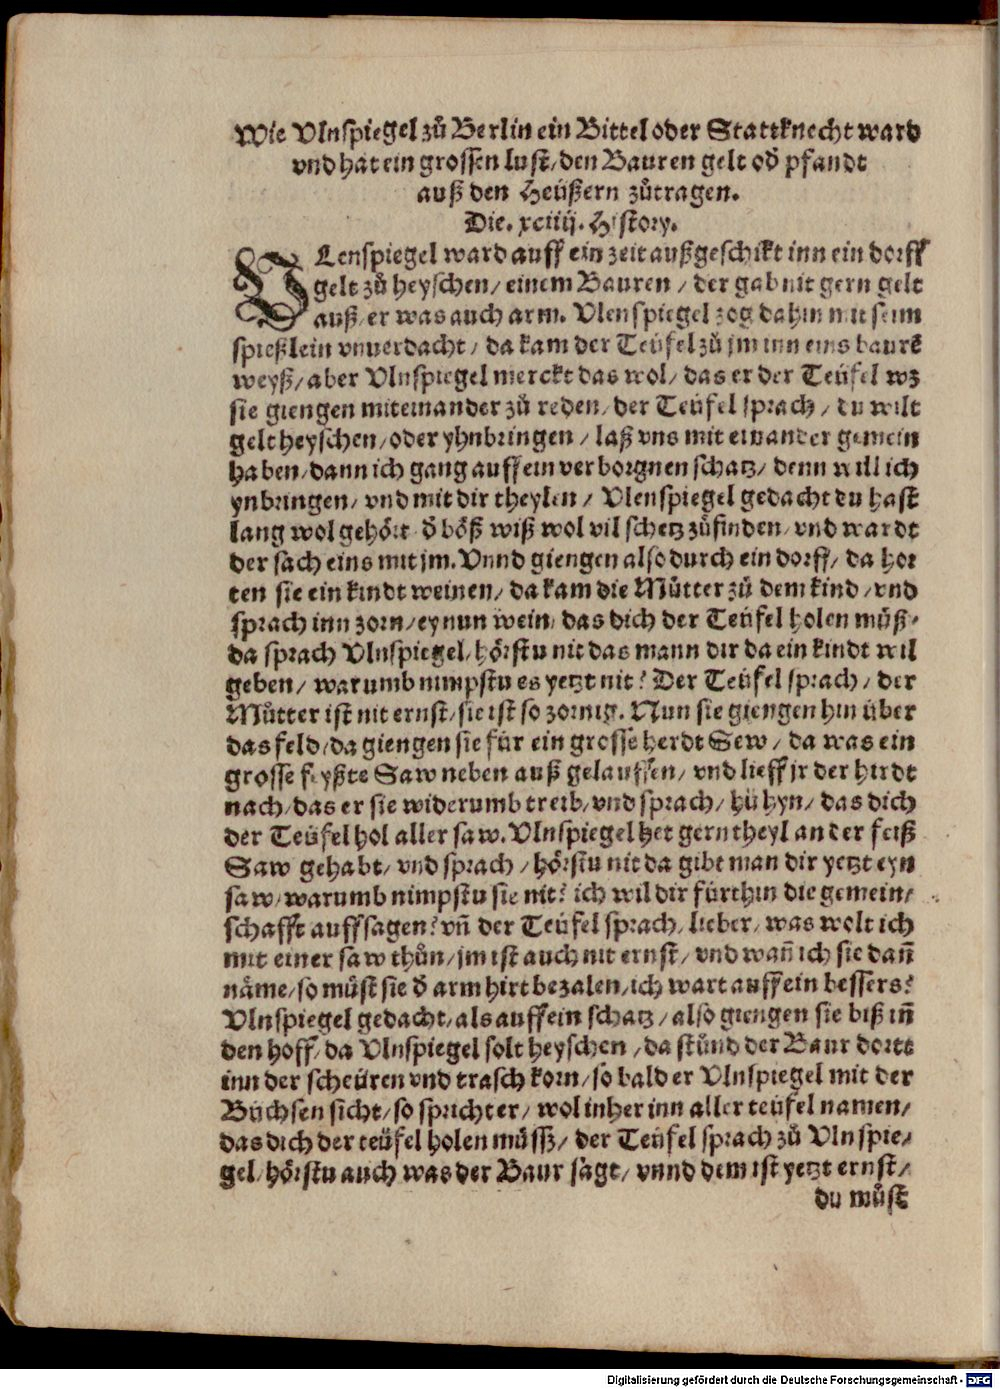 Wie Vlnspiegel zů Berlin ein Bittel oder Stattknecht ward
vnd hat ein grossen lust/ den Bauren gelt od̄ pfandt
auß den Heüßern zůtragen.
Die. xciiij. History.
VLenspiegel ward auff ein zeit außgeschikt inn ein dorff
gelt zů heyschen/ einem Bauren / der gab nit gern gelt
auß/ er was auch arm. Vlenspiegel zog dahin mit seim
spießlein vnuerdacht/ da kam der Teüfel zů jm inn eins baurē
weyß/ aber Vlnspiegel merckt das wol/ das er der Teüfel wz
sie giengen miteinander zů reden/ der Teüfel sprach / du wilt
gelt heyschen/ oder yhnbringen / laß vns mit einander gemein
haben/ dann ich gang auff ein verborgnen schatz/ denn will ich
ynbringen/ vnd mit dir theylen/ Vlenspiegel gedacht du hast
lang wol gehört d̄ böß wiß wol vil schetz zůfinden/ vnd wardt
der sach eins mit jm. Vnnd giengen also durch ein dorff/ da hor
ten sie ein kindt weinen/ da kam die Můtter zů dem kind / vnd
sprach inn zorn/ ey nun wein/ das dich der Teüfel holen můß/
da sprach Vlnspiegel/ hörstu nit das mann dir da ein kindt wil
geben/ warumb nimpstu es yetzt nit? Der Teüfel sprach/ der
Můtter ist nit ernst/ sie ist so zornig. Nun sie giengen hin über
das feld/ da giengen sie für ein grosse herdt Sew/ da was ein
grosse feyßte Saw neben auß gelauffen/ vnd lieff jr der hirdt
nach/ das er sie widerumb treib/ vnd sprach/ hü hyn/ das dich
der Teüfel hol aller saw. Vlnspiegel het gern theyl an der feiß
Saw gehabt/ vnd sprach/ hörstu nit da gibt man dir yetzt eyn
saw/ warumb nimpstu sie nit? ich wil dir fürthin die gemein/
schafft auffsagen? vn̄ der Teüfel sprach/ lieber/ was wolt ich
mit einer saw thůn/ jm ist auch nit ernst/ vnd wan̄ ich sie dan̄
näme/ so můst sie d̄ arm hirt bezalen/ ich wart auff ein bessers?
Vlnspiegel gedacht/ als auff ein schatz/ also giengen sie biß in̄
den hoff/ da Vlnspiegel solt heyschen/ da stůnd der Baur dortt
inn der scheüren vnd trasch korn/ so bald er Vlnspiegel mit der
Büchsen sicht/ so spricht er/ wol inher inn aller teüfel namen/
das dich der teüfel holen müsß/ der Teüfel sprach zů Vlnspie/
gel/ hörstu auch was der Baur sägt/ vnnd dem ist yetzt ernst/
du můst
Digitalisierung gefördert durch die Deutsche Forschungsgemeinschaft - DFG